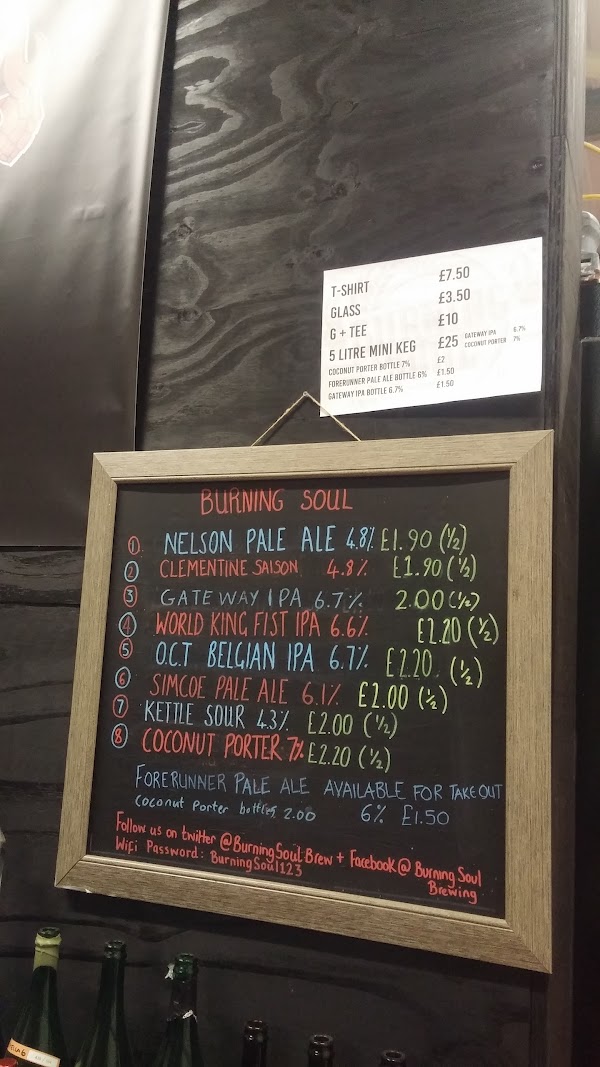 T-SHIRT £7.50
GLASS £3.50
G + TEE £10
5 LITRE MINI KEG £25 GATEWAY IPA 6.7%
COCONUT PORTER 7%
COCONUT PORTER BOTTLE 7% £2
FORERUNNER PALE ALE BOTTLE 6% £1.50
GATEWAY IPA BOTTLE 6.7% £1.50
BURNING SOUL
1 NELSON PALE ALE 4.8% £1.90 (½)
2 CLEMENTINE SAISON 4.8% £1.90 (½)
3 GATEWAY IPA 6.7% 2.00 (½)
4 WORLD KING FIST IPA 6.6% £2.20 (½)
5 O.C.T BELGIAN IPA 6.7% £2.20 (½)
6 SIMCOE PALE ALE 6.1% £2.00 (½)
7 KETTLE SOUR 4.3% £2.00 (½)
8 COCONUT PORTER 7% £2.20 (½)
FORERUNNER PALE ALE AVAILABLE FOR TAKE OUT
Coconut Porter bottles 2.00 6% £1.50
Follow us on twitter @BurningSoulBrew + Facebook @ Burning Soul Brewing
Wifi Password: BurningSoul123